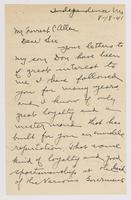 Independence Mo
8-18-41
Mr Forrest C Allen
Dear Sir
Your letters to
my son Don have been
of great interest to
me. I have followed
you for many years
and I know of only
great loyalty and
that has
built for you
reputation. Your same
kind of loyalty and good
sportsmanship
of the Various